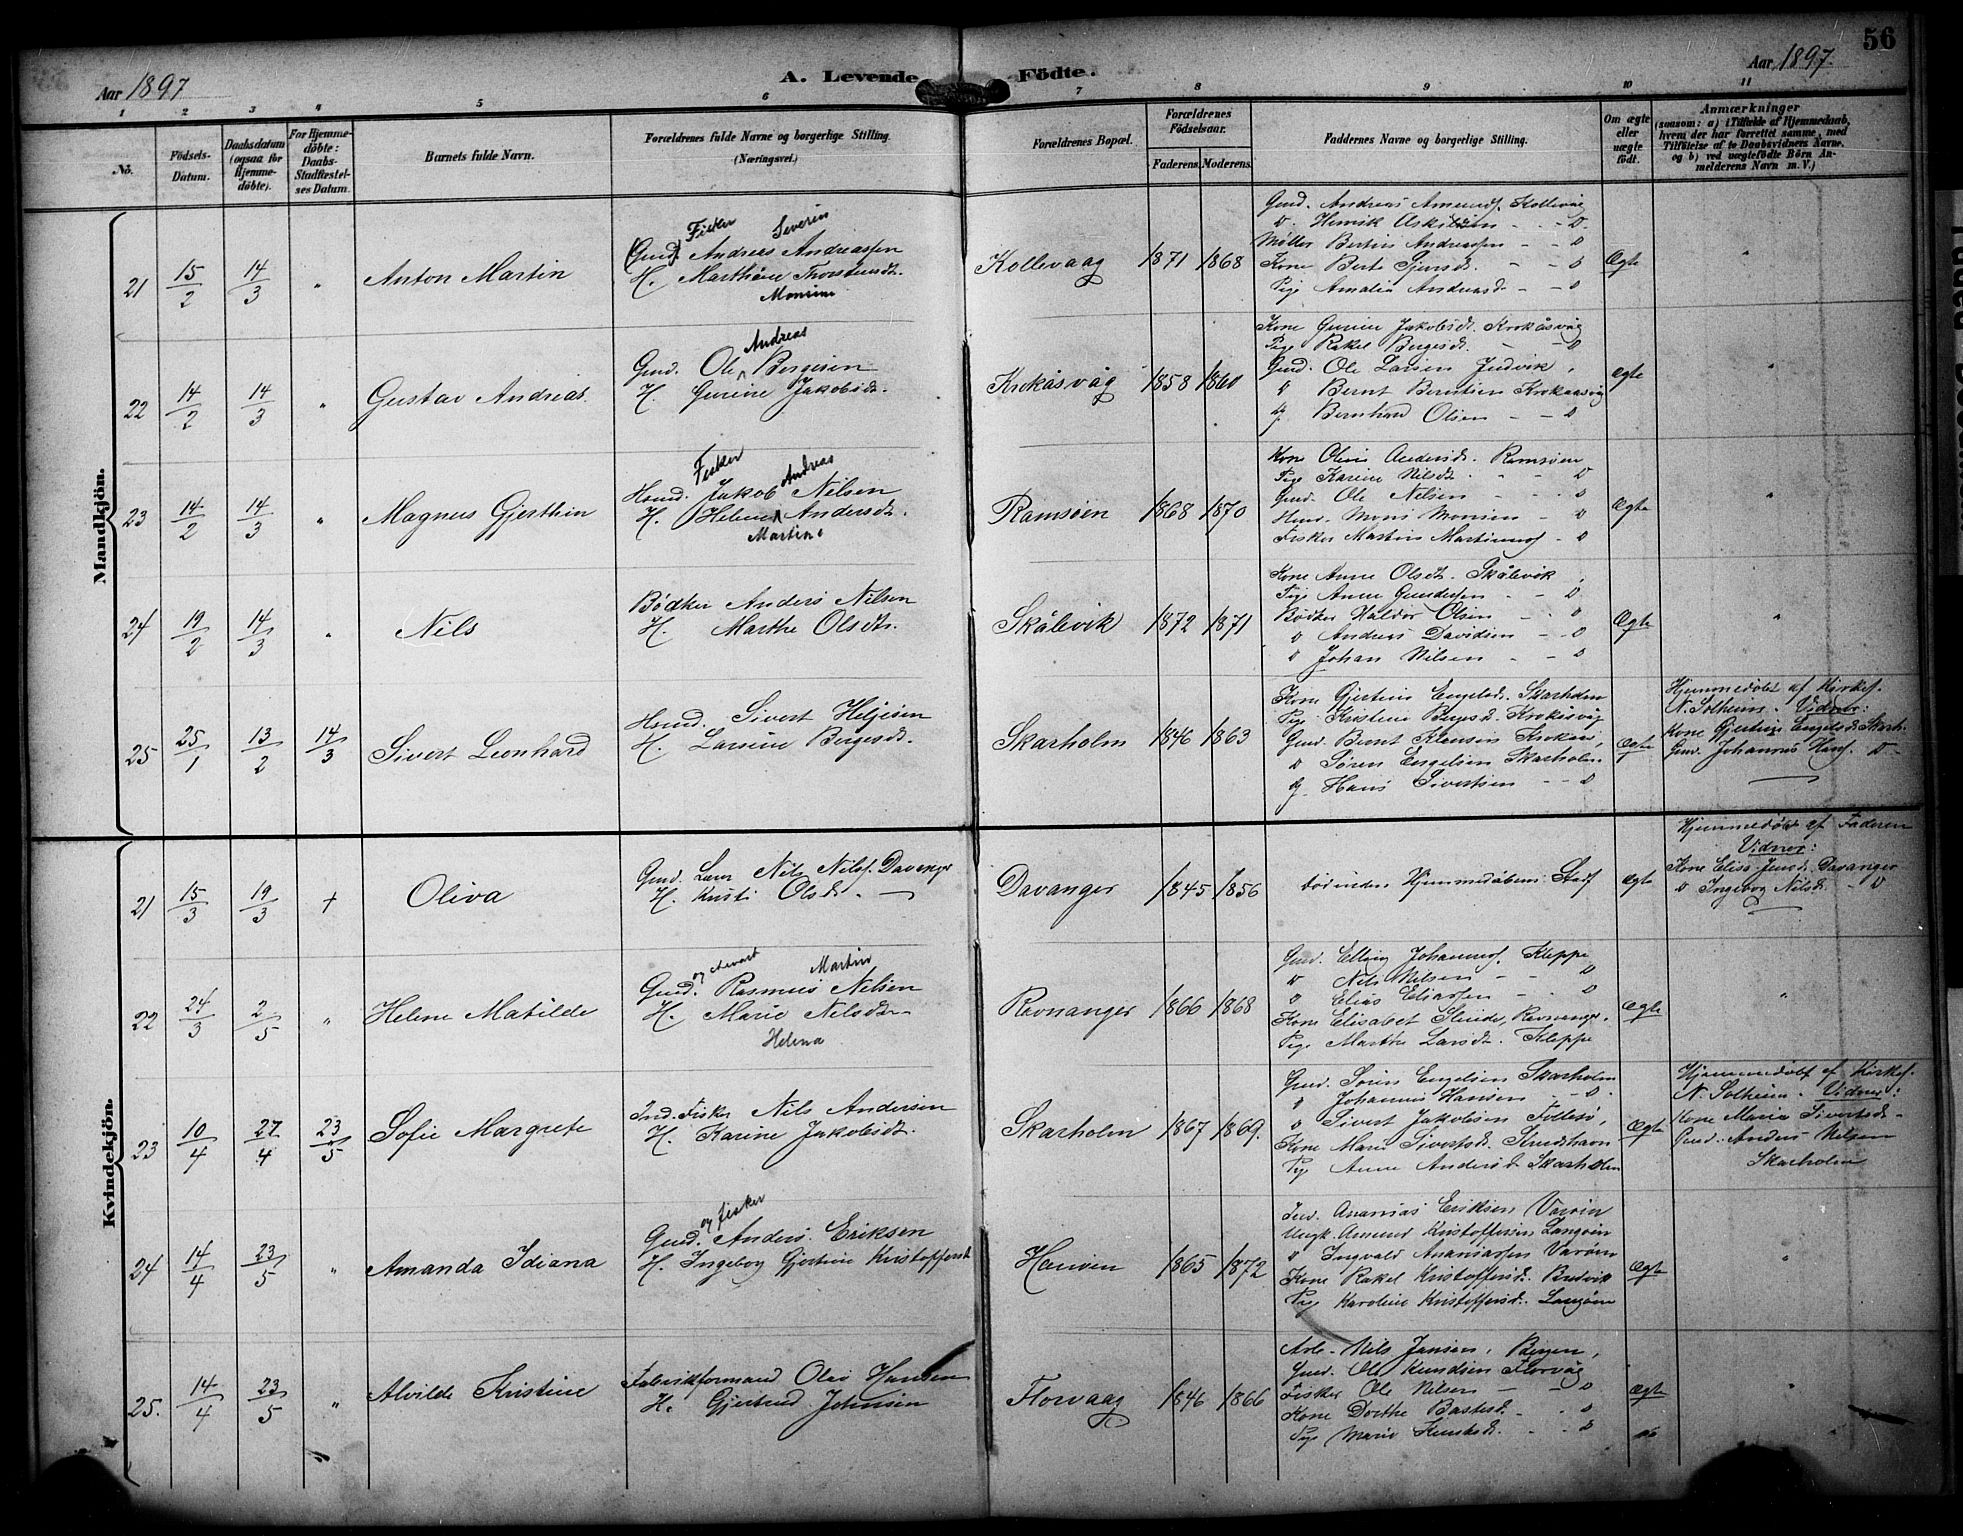 56
Aar 1897
A. Levende Födte.
Aar 1897.
1 2 3 4 5 6 7 8 9 10 11
No.
Födsels-Datum.
Daabsdatum (ogsaa for Hjemme-döbte).
For Hjemme-döbte: Daabs-Stadfæstel-ses Datum.
Barnets fulde Navn.
Forældrenes fulde Navne og borgerlige Stilling.
(Næringsvei.)
Forældrenes Bopæl.
Forældrenes Födselsaar.
Faderens. Moderens.
Faddernes Navne og borgerlige Stilling.
Om ægte eller uægte födt.
Anmærkninger
(saasom: a) i Tilfælde af Hjemmedaab,
hvem der har forrettet samme, med
Tilföielse af to Daabsvidners Navne.
og b) ved uægtefödte Börn An-
melderens Navn m. V.)
Mandkjön.
21 15/2 14/3 " Anton Martin
Fisker Severin
Gmd. Andreas Andreassen
H. Marthine Thorstensdt.
Monsine
Kollevaag 1871 1868
Gmd. Andreas Amunds. Kollevåg
D. Henrik Askildsen - - D.
Møller Bertin Andreassen - - D
Kone Berte - - D
Pige Amalia Andreasd. - - D
Ægte "
22 14/2 14/3 " Gustav Andreas.
Andreas
Gmd. Ole Børgesen
H. Gurine Jakobsdt.
Krokåsvåg 1858 1860
Kone Gurine Jakobsdt. Krokåsvåg
Pige Rakel Børgesd. - D
Gmd. Ole Larsen Judvik,
D Bernt Berntsen Krokaasvåg
g. Bernhard Olsen - - D
Ægte "
23 14/2 14/3 " Magnus Gjerthin
Fisker Andreas
Husmd. Jakob Nilsen
H. Helene Andersdt.
Martine
Ramsøen 1868 1870
Kone Oline Andersdt. Ramsøen
Pige Karine Nilsdt. - - D
Gmd. Ole Nilsen - - D
Husmd. Mons Monsen - D
Fisker Martin - D
Ægte "
24 19/2 14/3 " Nils
Bødker Anders Nilsen
H. Marthe Olsdt.
Skålevik 1872 1871
Kone Anne Olsdt. Skålevik,
Pige Anne Gundersen - - D
Bødker Haldor Olsen - - D
D Andreas Davidsen - - D
D Johan Nilsen - - D
Ægte "
25 25/1 13/2 14/3 Sivert Leonhard
Husmd. Sivert Heljesen
H. Larsine Børgesdt.
Skarholm 1846 1863
Kone Gjertine Engelsd. Skarholm
Pige Kristine Børgesd. Krokåsvåg
Gmd. Bernt Klausen Krokås,
D Søren Engelsen Skarholm
g. Hans Sivertsen - - D
Ægte
Hjemmedøbt af Kirkes.
N. Solheim. Vidner:
Kone Gjertine Engelsd. Skarh.
Gmd. Johannes Hans. D -
Kvindekjön.
21 15/3 19/3 + Oliva
Gmd. Lærer Nils Nilss. Davanger
H. Kristi Olsdt. -
Davanger 1845 1856
død uden Hjemmedåbens Stadf
Ægte
Hjemmedøbt af Faderen
Vidner:
Kone Elise Jensd. Davanger
D Ingeborg Nilsd. - D
22 24/3 2/5 " Helene Matilde
Martin
Gmd. Rasmus Nilsen
H. Marie Nilsdt.
Helena
Ravnanger 1866 1868
Gmd. Elling Johanness. Kleppe
D Nils Nilsen - - D
D Elias Eliassen - - D
Kone Elisabet Ravnanger.
Pige Marthe Larsdt. Kleppe
Ægte "
23 10/4 27/4 23/5 Sofie Margrete
Ind. Fisker Nils Andersen
H. Karine Jakobsdt.
Skarholm 1867 1869.
Gmd. Søren Engelsen Skarholm
D Johannes Hansen - - D.
D Sivert Jakobsen Follesø,
Kone Marie Sivertsd.
Pige Anne Andersd. Skarholm
Ægte
Hjemmedøbt af Kirkes.
N. Solheim. Vidner:
Kone Maria Sivertsdt.
Gmd. Anders Nilsen
Skarholm
24 14/4 23/5 " Amanda Idiana
og fisker
Gmd. Anders Eriksen
H. Ingeborg Gjertine Kristoffersdt.
Hanøen 1865 1872
Ananias Eriksen Varøen
Ungk. Amund Kristoffersen Langøen
D Ingvald Ananiassen Varøen
Kone Rakel Kristoffersdt. Bredvik
Pige Karoline Kristoffersdt. Langøen
Ægte "
25. 14/4 23/5 " Alvilde Kristine
Fabrikformand Ole Hansen
H. Gjertrud Johnsen
Florvaag 1846 1866
Arb. Nils Jansen, Bergen,
Gmd. Ole Knudsen Florvåg
Fisker Ole Nilsen - - D
Kone Dorthe Bastesd. - - D
Pige Marie Knudsd. - - D
Ægte "